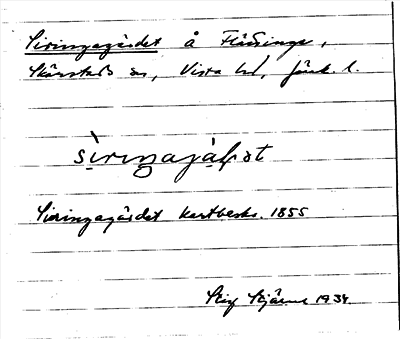 Siringagärdet å Flättinge,
Skärstads sn, Vista hd, Jönk. l.
sìriŋagàḷət
Siringagärdet kartbeskr. 1855
Stig Bjärme 1934.